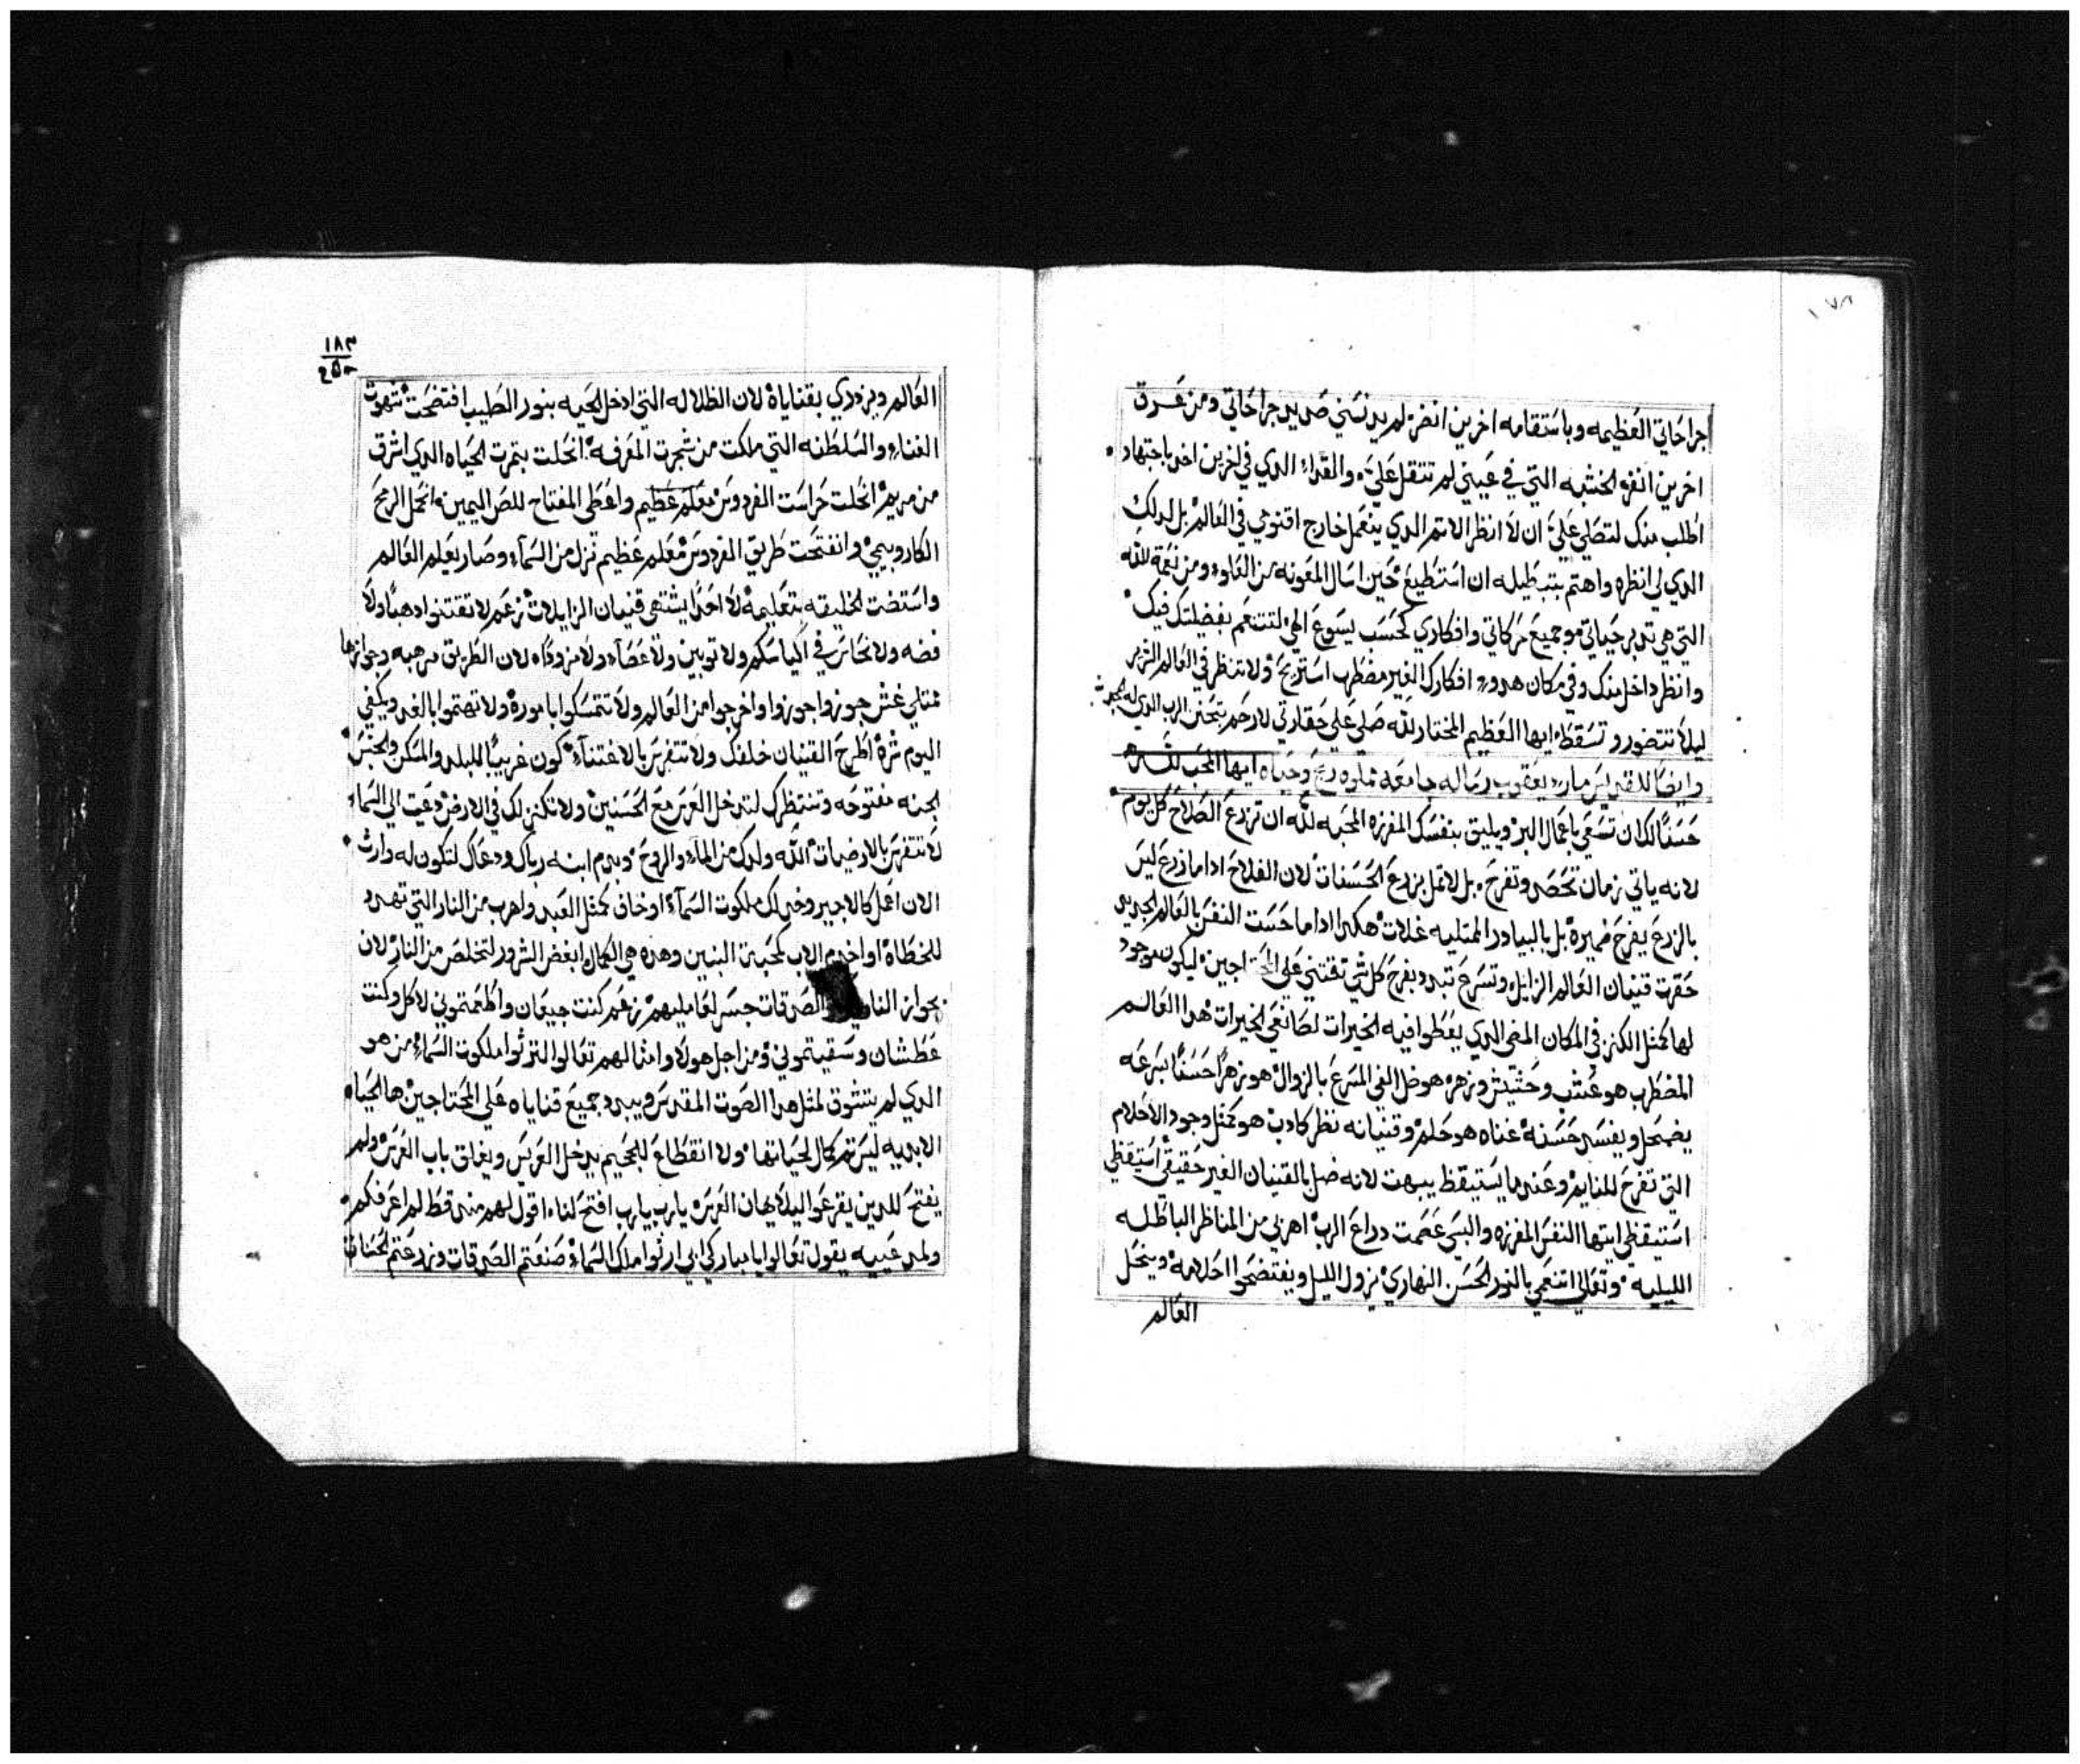 جراحاتي العظيمه وباستقامه اخرين انضر لم يدنسني صديد جراحاتي ومن غرق
اخرين انفر الخشبه التي في عيني لم تتقل عليَّ والقداء الدي في اخرين اخد باجتهاد
اطلب منك لتصلي عليَّ ان لا انظر الاتم الدي ينعمل خارج اقنومي في العالم بل لدلك
الدي لي انظره واهتم بتبطيله ان استطيع حين اسال المعونه من العلوء ومن نعمة الله
التي هي تدبر حياتي وجميع حركاتي وافكاري كحسب يسوع الهي لتتنعم بفضيلتك فيك
وانظر داخل منك وفي مكان هدوء افكارك الغير مضطرب استريح ولا تنظر في العالم الشرير
ليلا تتضور وتسقط ايها العظيم المختار لله صلي علي حقارتي لارحم بتحنن الرب الدي له المجد
وايضا للقديس مارء يعقوب رساله جامعه مملوه ربح وحياه ايها المحب لله
حسنًا لكان تسعي باعمال البر ويليق بنفسك المفرزه المحبه لله ان تزرع الصلاح كل يوم
لانه ياتي زمان تحصد وتفرح بل لا تمل بزرع الحسنات لان الفلاح ادا ما زرع ليس
بالزرع يفرح ضميره بل بالبيادر الممتليه غلات هكدا ادا ما حست النفس بالعالم الجديد
حقرت قنيان العالم الزايل وتسرع تبدد بفرح كل شي تقتني علي المحتاجين ليكون موجود
لها كمثل الكنز في المكان المضي الدي يعطوا فيه الخيرات لصانعي الخيرات هدا العالم
المضطرب هو عشب وحشيش وزهر هو ضل الفي المسرع بالزوال هو زهرًا حسنًا بسرعه
يضمحل ويفسد حسنه غناه هو حلم وقنيانه نظر كادب هو كمثل وجود الاحلام
التي تفرح للنايم وعند ما يستيقظ يبهت لانه ضل بالقنيان الغير حقيقي استيقظي
استيقظي ايتها النفس المفرزه والبسي عصمت دراع الرب اهربي من المناظر الباطله
الليليه وتعالي اتنعمي بالنور الحسن النهاري يزول الليل ويفتضحوا احلامه وينحل
العالم
١٨٣
العالم ويزدري بقناياه لان الظلاله التي ادخل الحيه بنور الطيب افتضحت شهوت
الفناء والسلطنه التي ملكت من شجرت المعرفه انحلت بتمرت الحياه الدي اشرق
من مريم انحلت حراست الفردوس معلم عظيم واعطي المفتاح للص اليمين انحل الرمح
الكاروبيمي وانفتحت طريق الفردوس معلم عظيم نزل من السماء وصار يعلم العالم
واستضت الخليقه بتعليمه لا احدًا يشتهي قنيان الزايلات زعم لا تقتنوا دهبًا ولا
فضه ولا نحاس في اكياسكم ولا توبين ولا عصاء ولا مزودًا لان الطريق مرهبه وجوازها
ممتلي غش جوزوا جوزوا واخرجوا من العالم ولا تتمسكوا باموره ولا تهتموا بالغد ويكفي
اليوم شره اطرح القنيان خلفك ولا تتفرس بالاغتناء كون غريبًا للبلد والمسكن والجنس
الجنه مفتوحه وتنتظرك لتدخل العرس مع الحسنين ولا تكنز لك في الارض دعيت الي السماء
لا تتفرس بالارضيات الله ولدك من الماء والروح وبدم ابنه رباك ودعاك لتكون له وارث
الان اعمل كالاجير وخد لك ملكوت السماء او خاف كمثل العبد واهرب من النار التي تهدد
للخطاه او اخدم الاب كمحبة البنين وهده هي الكمال ابغض الشرور لتخلص من النار لان
بجواز النار الصدقات جسر لعامليهم زعم كنت جيعان واطعمتموني لاكل وكنت
عطشان وسقيتموني ومن اجل هولا وامثالهم تعالوا لترثوا ملكوت السماء من هو
الدي لم يتشوق لمثل هدا الصوت المقدس ويبدد جميع قناياه علي المحتاجين ها الحياه
الابديه ليس تم كمال لحياتها ولا انقطاع للجحيم يدخل العريس ويغلق باب العرس ولم
يفتح للدين يقرعوا ليلا يهان العرس يارب يارب افتح لنا اقول لهم مند قط لم اعرفكم
ولمدعييه يقول تعالوا يا مباركي ابي ارثوا ملك السماء صنعتم الصدقات وزرعتم الحسنات